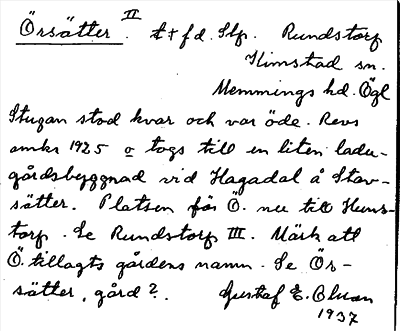 Örsätter II. t + f d. Stp. Rundstorp
Kimstad sn.
Memmings hd. Ögl
Stugan stod kvar och var öde. Revs
omkr 1925 o togs till en liten ladu-
gårdsbyggnad vid Hagadal å Stav-
sätter. Platsen för Ö. nu till Huns-
torp. Se Rundstorp III. Märk att
Ö. tillagts gårdens namn. Se Ör-
sätter, gård?. Gustaf E.
1937